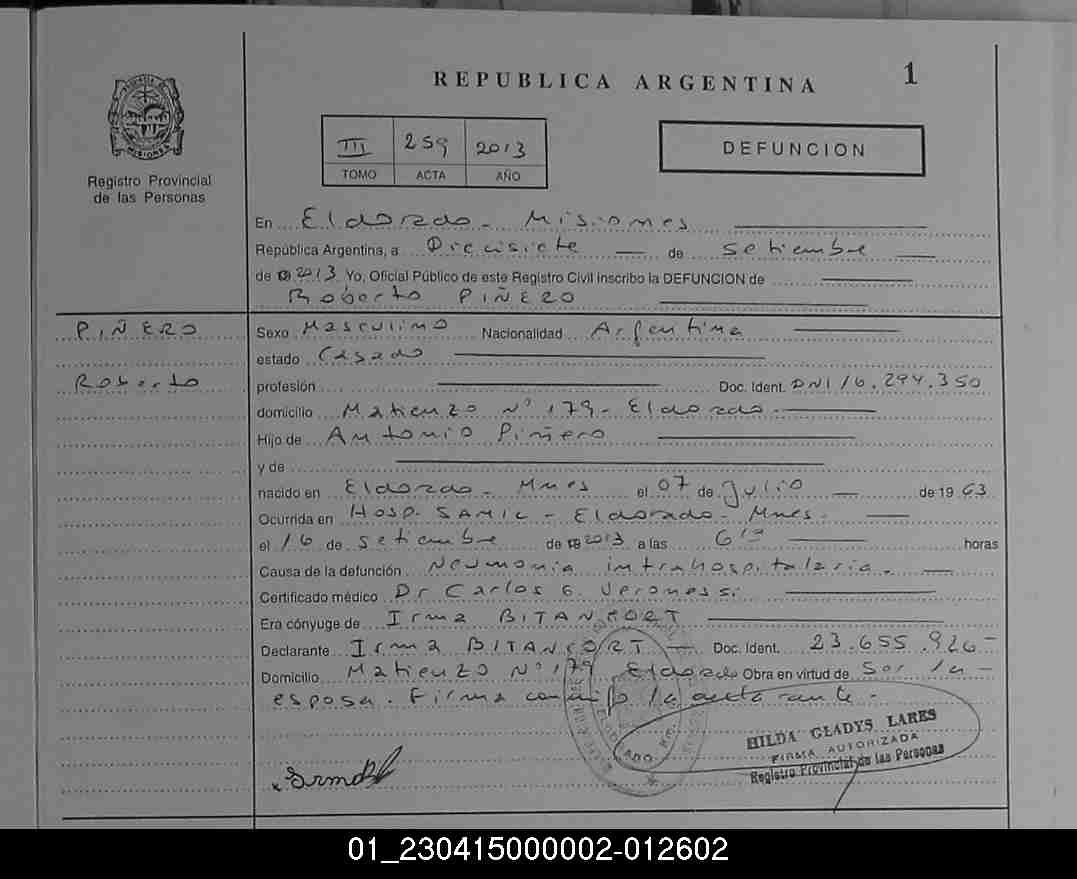 REPUBLICA ARGENTINA
1
PROVINCIA DE MISIONES
Registro Provincial
de las Personas
III 259 2013
TOMO ACTA AÑO
DEFUNCION
En Eldorado - Misiones
República Argentina, a Diecisiete de setiembre
de 2013 Yo, Oficial Público de este Registro Civil inscribo la DEFUNCION de
Roberto PIÑERO
PIÑERO
Roberto
Sexo Masculino Nacionalidad Argentina
estado Casado
profesión Doc. Ident. DNI 16.294.350
domicilio Matienzo N° 179 - Eldorado -
Hijo de Antonio Piñero
y de
nacido en Eldorado - Mnes el 07 de Julio de 1963
Ocurrida en Hosp. SAMIC - Eldorado - Mnes -
el 16 de setiembre de 2013 a las horas
Causa de la defunción Neumonia intrahospitalaria -
Certificado médico Dr Carlos G. Veronessi
Era cónyuge de Irma BITANCORT
Declarante Irma BITANCORT - Doc. Ident. 23.655.926 -
Domicilio Matienzo N° 179 Eldorado Obra en virtud de Ser la -
esposa. Firma conmigo la -
HILDA GLADYS LARES
FIRMA AUTORIZADA
Registro Provincial de las Personas
01_230415000002-012602